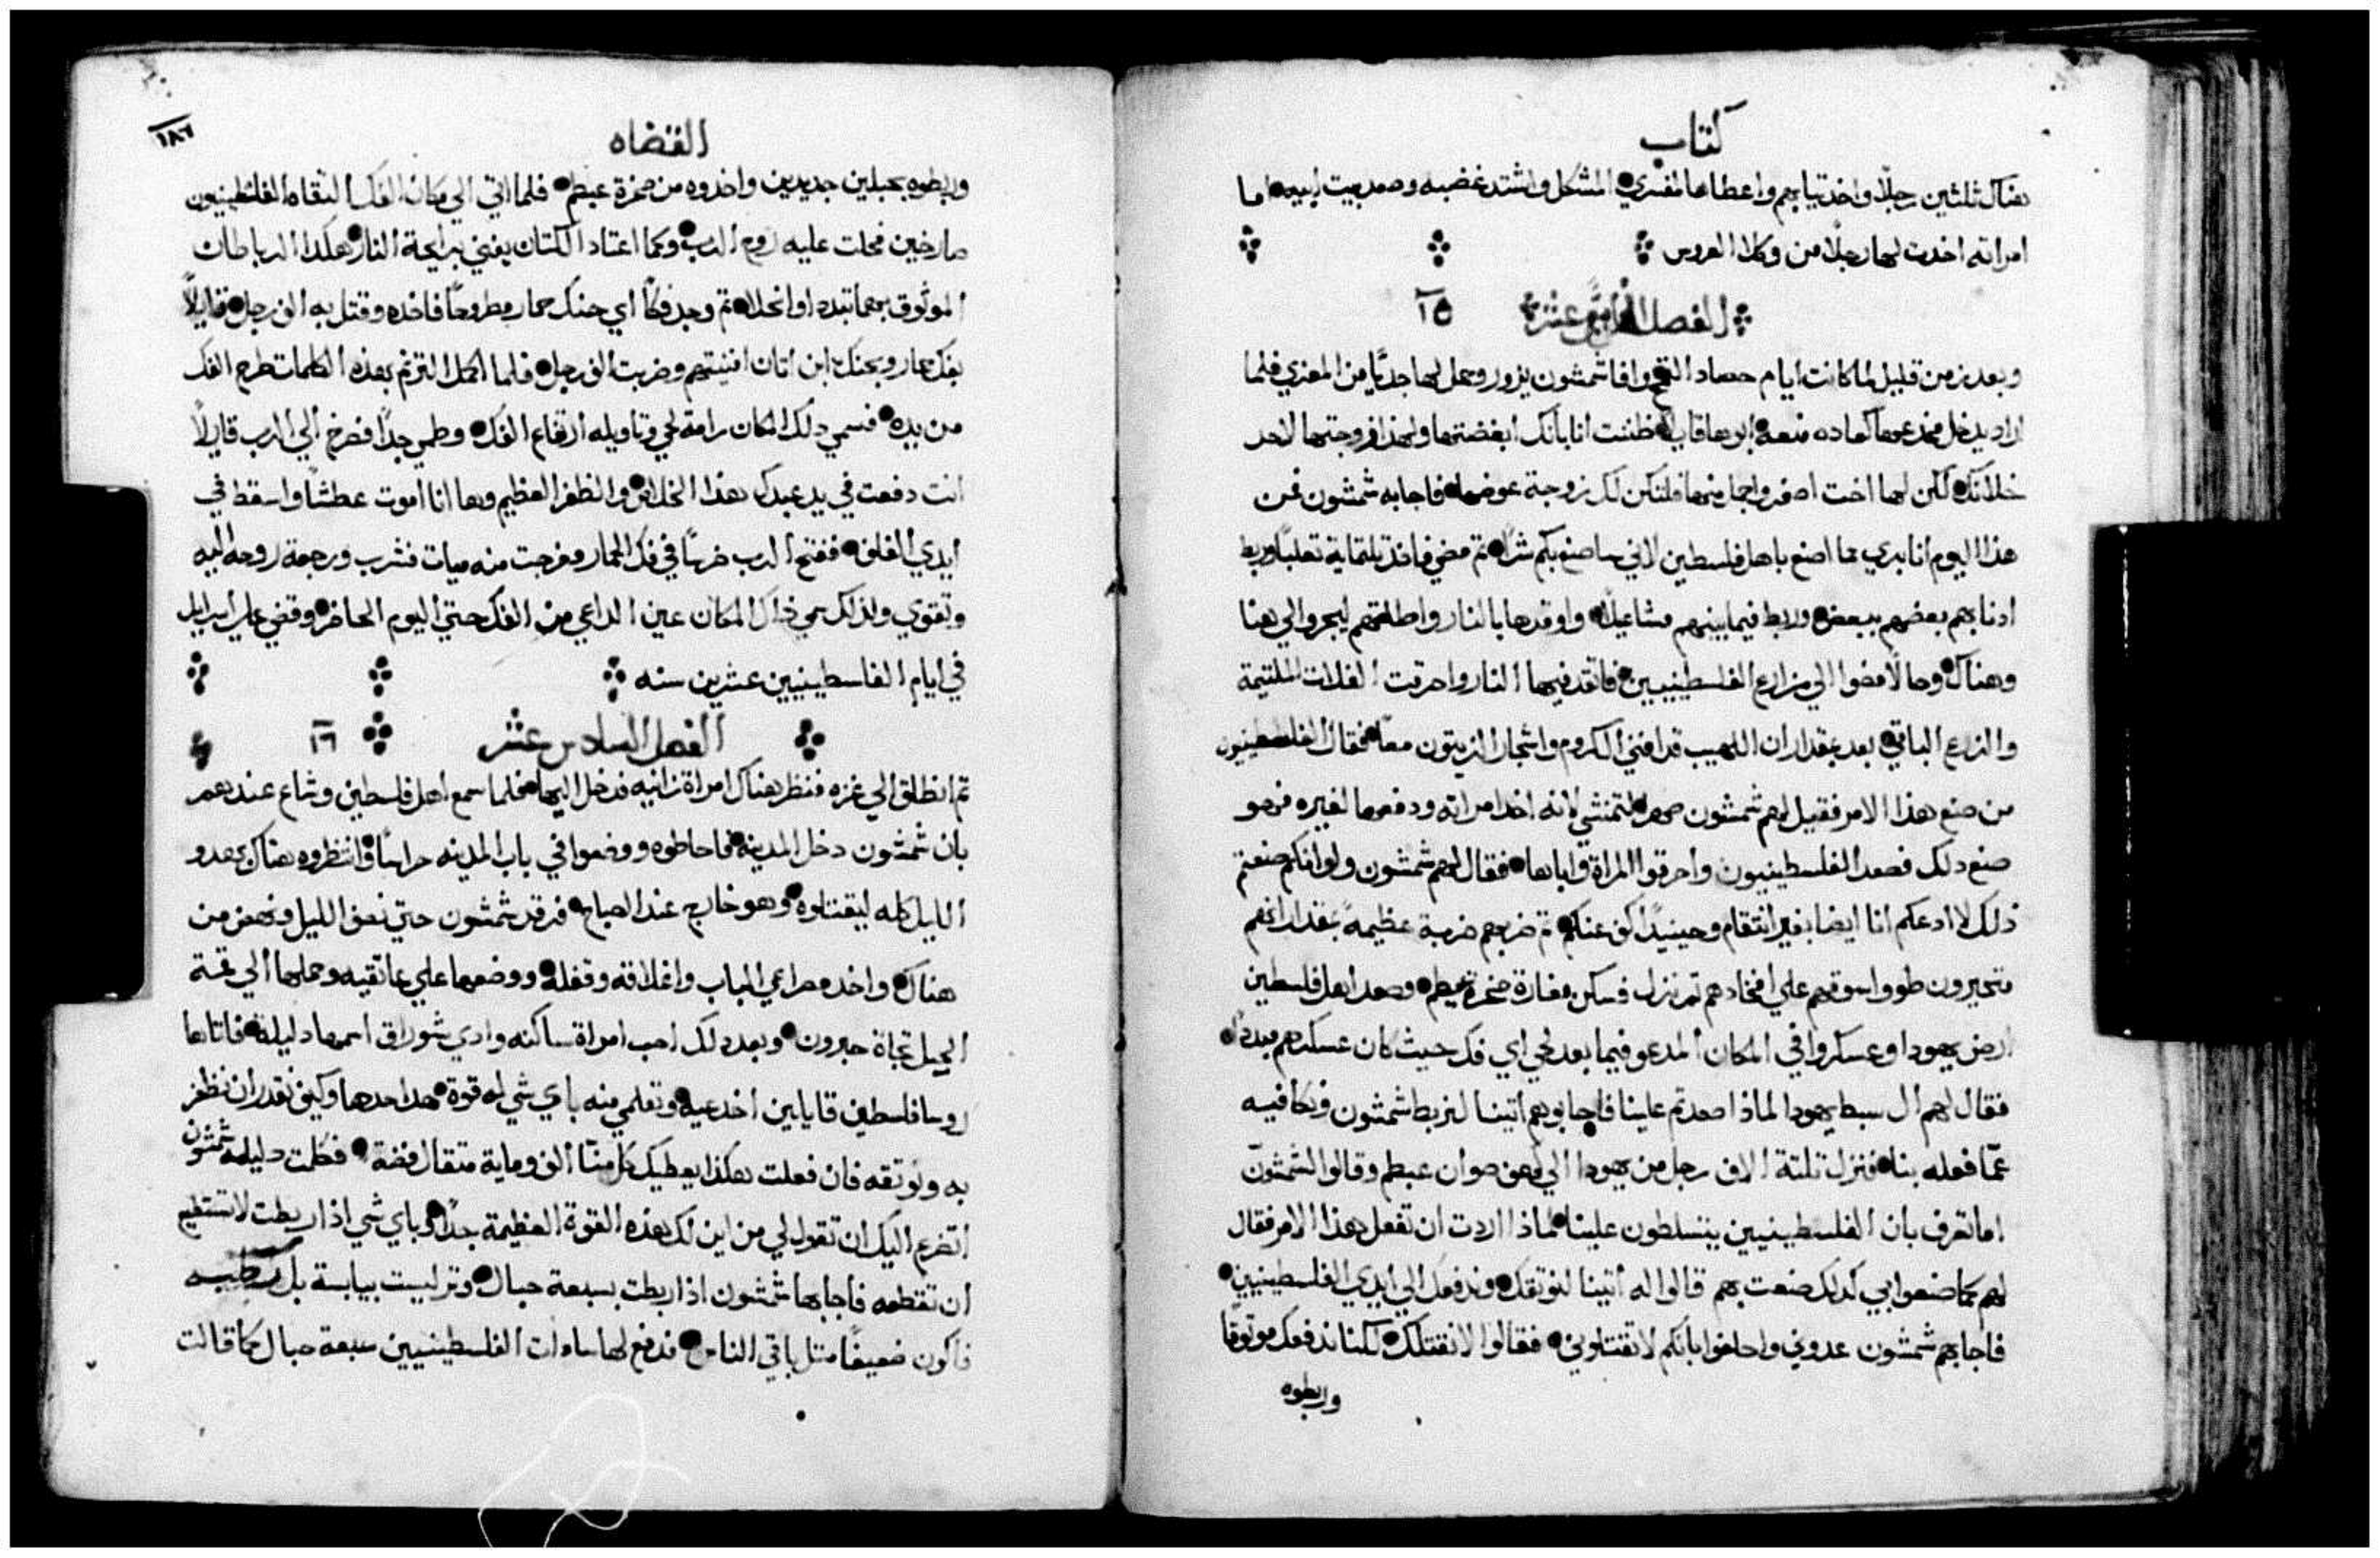 كتاب
هناك ثلثين رجلًا واخد تيابهم واعطاها لمفسري المشكل واشتد غضبه وصعد بيت ابيه اما
امراته اخدت لها رجلًا من وكلا العرس
الفصل الخامس عشر ١٥
وبعد زمن قليل لما كانت ايام حصاد القمح وافا شمشون يزور وحمل لها جديًا من المعزي فلما
اراد يدخل مخدعها كعاده منعه ابوها قايلًا ظننت انا بانك ابغضتها ولهذا زوجتها لاحد
خلانك لكن لها اخت اصغر واجمل منها فلتكن لك زوجة عوضها فاجابه شمشون من
هذا اليوم انا بري مما اصنع باهل فلسطين لاني ساصنع بكم شرًا تم مضي فاخذ تلتماية تعلبًا وربط
ادنابهم بعضهم ببعض وربط فيما بينهم مشاعيلًا واوقدها بالنار واطلقهم ليجروا الي هنا
وهناك وحالًا مضوا الي مزارع الفلسطينيين فاتقد فيها النار واحرقت الغلات الملتيمة
والزرع الباقي بعد بمقدار ان اللهيب قد افني الكروم واشجار الزيتون معًا فقال الفلسطينيون
من صنع هذا الامر فقيل لهم شمشون صهر التمنثي لانه اخد امراته ودفعها لغيره فهو
صنع دلك فصعد الفلسطينيون واحرقوا المراة واباها فقال لهم شمشون ولو انكم صنعتم
ذلك لا ادعكم انا ايضا بغير انتقام وحينيدًا اكف عنكم تم ضربهم ضربة عظيمة بمقدار انهم
متحيرون طووا سوقهم علي افخادهم تم نزل فسكن مغارة صخرة عيطم وصعد اهل فلسطين
ارض يهودا وعسكروا في المكان المدعو فيما بعد لحي اي فك حيث كان عسكرهم مبددًا
فقال لهم ال سبط يهودا لماذا صعدتم علينا فاجابوهم اتينا لنربط شمشون ونكافيه
عمّا فعله بنا فنزل تلتة الاف رجل من يهودا الي كهف صوان عيطم وقالوا لشمشون
اما تعرف بان الفلسطينيين يتسلطون علينا لماذا اردت ان تفعل هذا الامر فقال
لهم كما صنعوا بي كدلك صنعت بهم قالوا له اتينا لنوتقك وندفعك الي ايدي الفلسطينيين
فاجابهم شمشون عدوني واحلفوا بانكم لا تقتلوني فقالوا لا نقتلك لكننا ندفعك موتوقًا
وربطوه
القضاه
١٨٦
وربطوه بحبلين جديدين واخدوه من صخرة عيطم فلما اتي الي مكان الفك التقاه الفلسطينيون
صارخين فحلت عليه روح الرب وكما اعتاد الكتان يفني برايحة النار هكدا الرباطات
الموثوق بهما تبددا وانحلا تم وجد فكًا اي حنك حمار مطروحًا فاخده وقتل به الف رجل قايلًا
بفك حمار وبحنك ابن اتان افنيتهم وضربت الف رجل فلما اكمل الترنم بهده الكلمات طرح الفك
من يده فسمي دلك المكان رامة لحي وتاويله ارتفاع الفك وظمي جدًا فصرخ الي الرب قايلًا
انت دفعت في يد عبدك هذا الخلاص والظفر العظيم وها انا اموت عطشًا واسقط في
ايدي الغلف ففتح الرب ضرسًا في فك الحمار وخرجت منه ميات فشرب ورجعة روحه اليه
وتقوي ولذلك سمي ذاك المكان عين الداعي من الفك حتي اليوم الحاضر وقضي علي اسراييل
في ايام الفلسطينيين عشرين سنه
الفصل السادس عشر ١٦
تم انطلق الي غزه فنظر هناك امراة زانيه فدخل اليها فلما سمع اهل فلسطين وشاع عندهم
بان شمشون دخل المدينه فاحاطوه ووضعوا في باب المدينه حراسًا وانتظروه هناك بهدو
الليل كله ليقتلوه وهو خارج عند الصباح فرقد شمشون حتي نصف الليل ونهض من
هناك واخد مصراعي الباب واغلاقه وقفله ووضعها علي عاتقيه وحملها الي قمة
الجبل تجاة حبرون وبعد دلك احب امراة ساكنه وادي شوراق اسمها دليلة فاتاها
روسا فلسطين قايلين اخدعيه وتعلمي منه باي شي له قوة هدا حدها وكيف نقدر ان نظفر
به ونوتقه فان فعلت هكذا يعطيك كل منّا الف وماية متقال فضة فكلمت دليله شمشون
اتضرع اليك ان تقول لي من اين لك هذه القوة العظيمة جدًا وباي شي اذا ربطت لا تستطيع
ان تقطعه فاجابها شمشون اذا ربطت بسبعة حبال وتر ليست بيابسة بل رطبه
فاكون ضعيفًا متل باقي الناس فدفع لها سادات الفلسطينيين سبعة حبال كما قالت